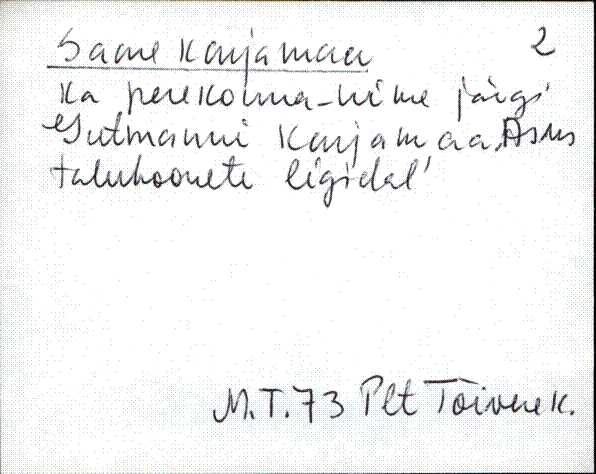 Saare karjamaa 2
ka perekonna-nime järgi
Gutmanni karjamaa, Asus
taluhoonete ligidal
M.T.73 Plt Tõivere k.